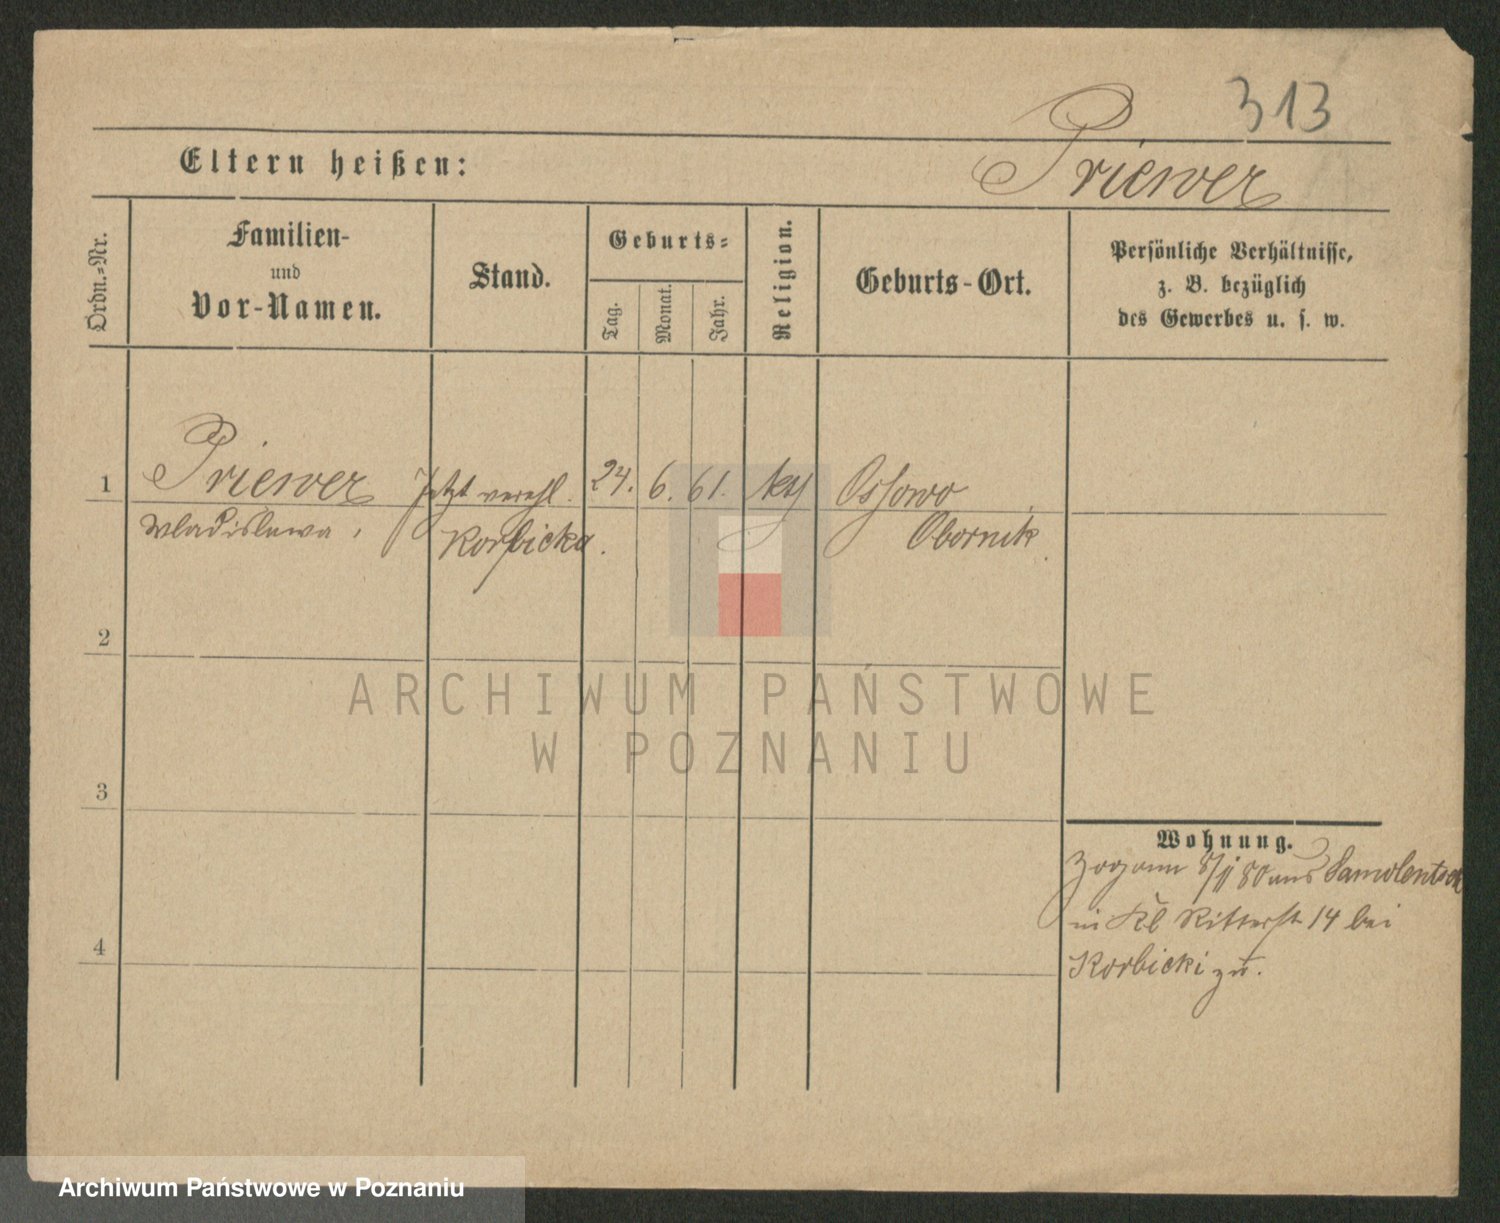 313
Priewer
Eltern heißen:
Ordn.-Nr.
Familien-
und
Vor-Namen.
Stand.
Geburts-
Tag.
Monat.
Jahr.
Religion.
Geburts-Ort.
Persönliche Verhältnisse,
z. B. bezüglich
des Gewerbes u. s. w.
1 Priewer Jetzt verehl. 24. 6. 61. Ossowo
Wladislawa, Korbicka. Obornik
2
3
4
Wohnung.
aus
in Kl Ritterstr 14 bei
Korbicki zu.
ARCHIWUM PAŃSTWOWE
W POZNANIU
Archiwum Państwowe w Poznaniu